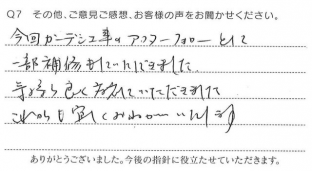 Q7 その他、ご意見ご感想、お客様の声をお聞かせください。
今回ガーデン工事のアフターフォローとして
一部補修をしていただきました。
手際良く対応していただきました
これからも宜しくおねがいいたします
ありがとうございました。今後の指針に役立たせていただきます。